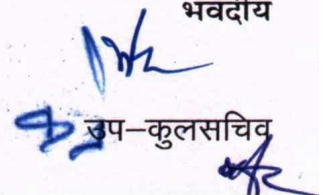 भवदीय
उप–कुलसचिव